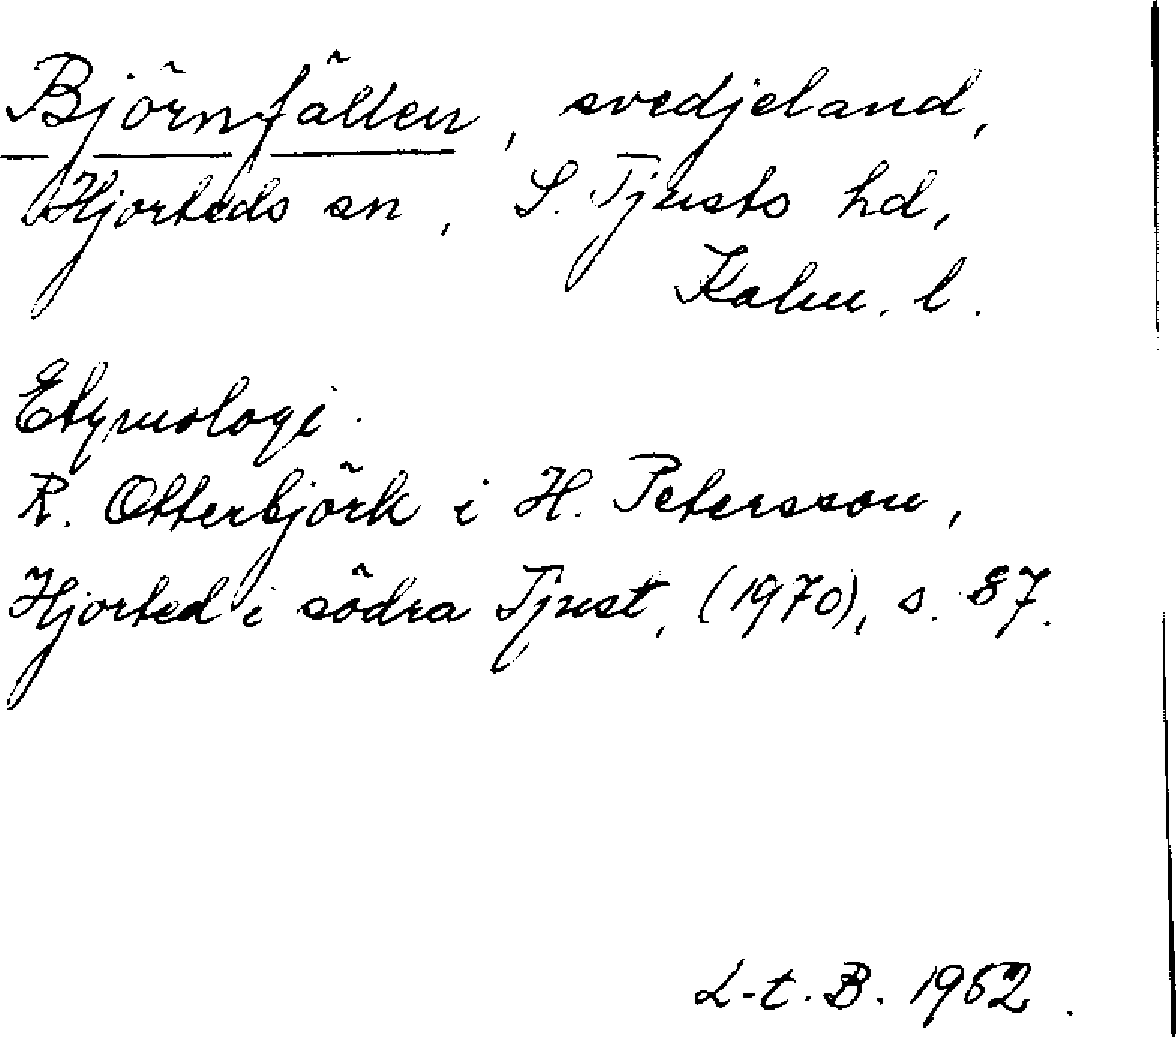 Björnfällen, svedjeland,
Hjorteds sn, S. Tjusts hd,
Kalm. l.
Etymologi.
R. Otterbjörk i H. Petersson,
Hjorted i södra Tjust, (1970), s. 87.
L-t. B. 1962.